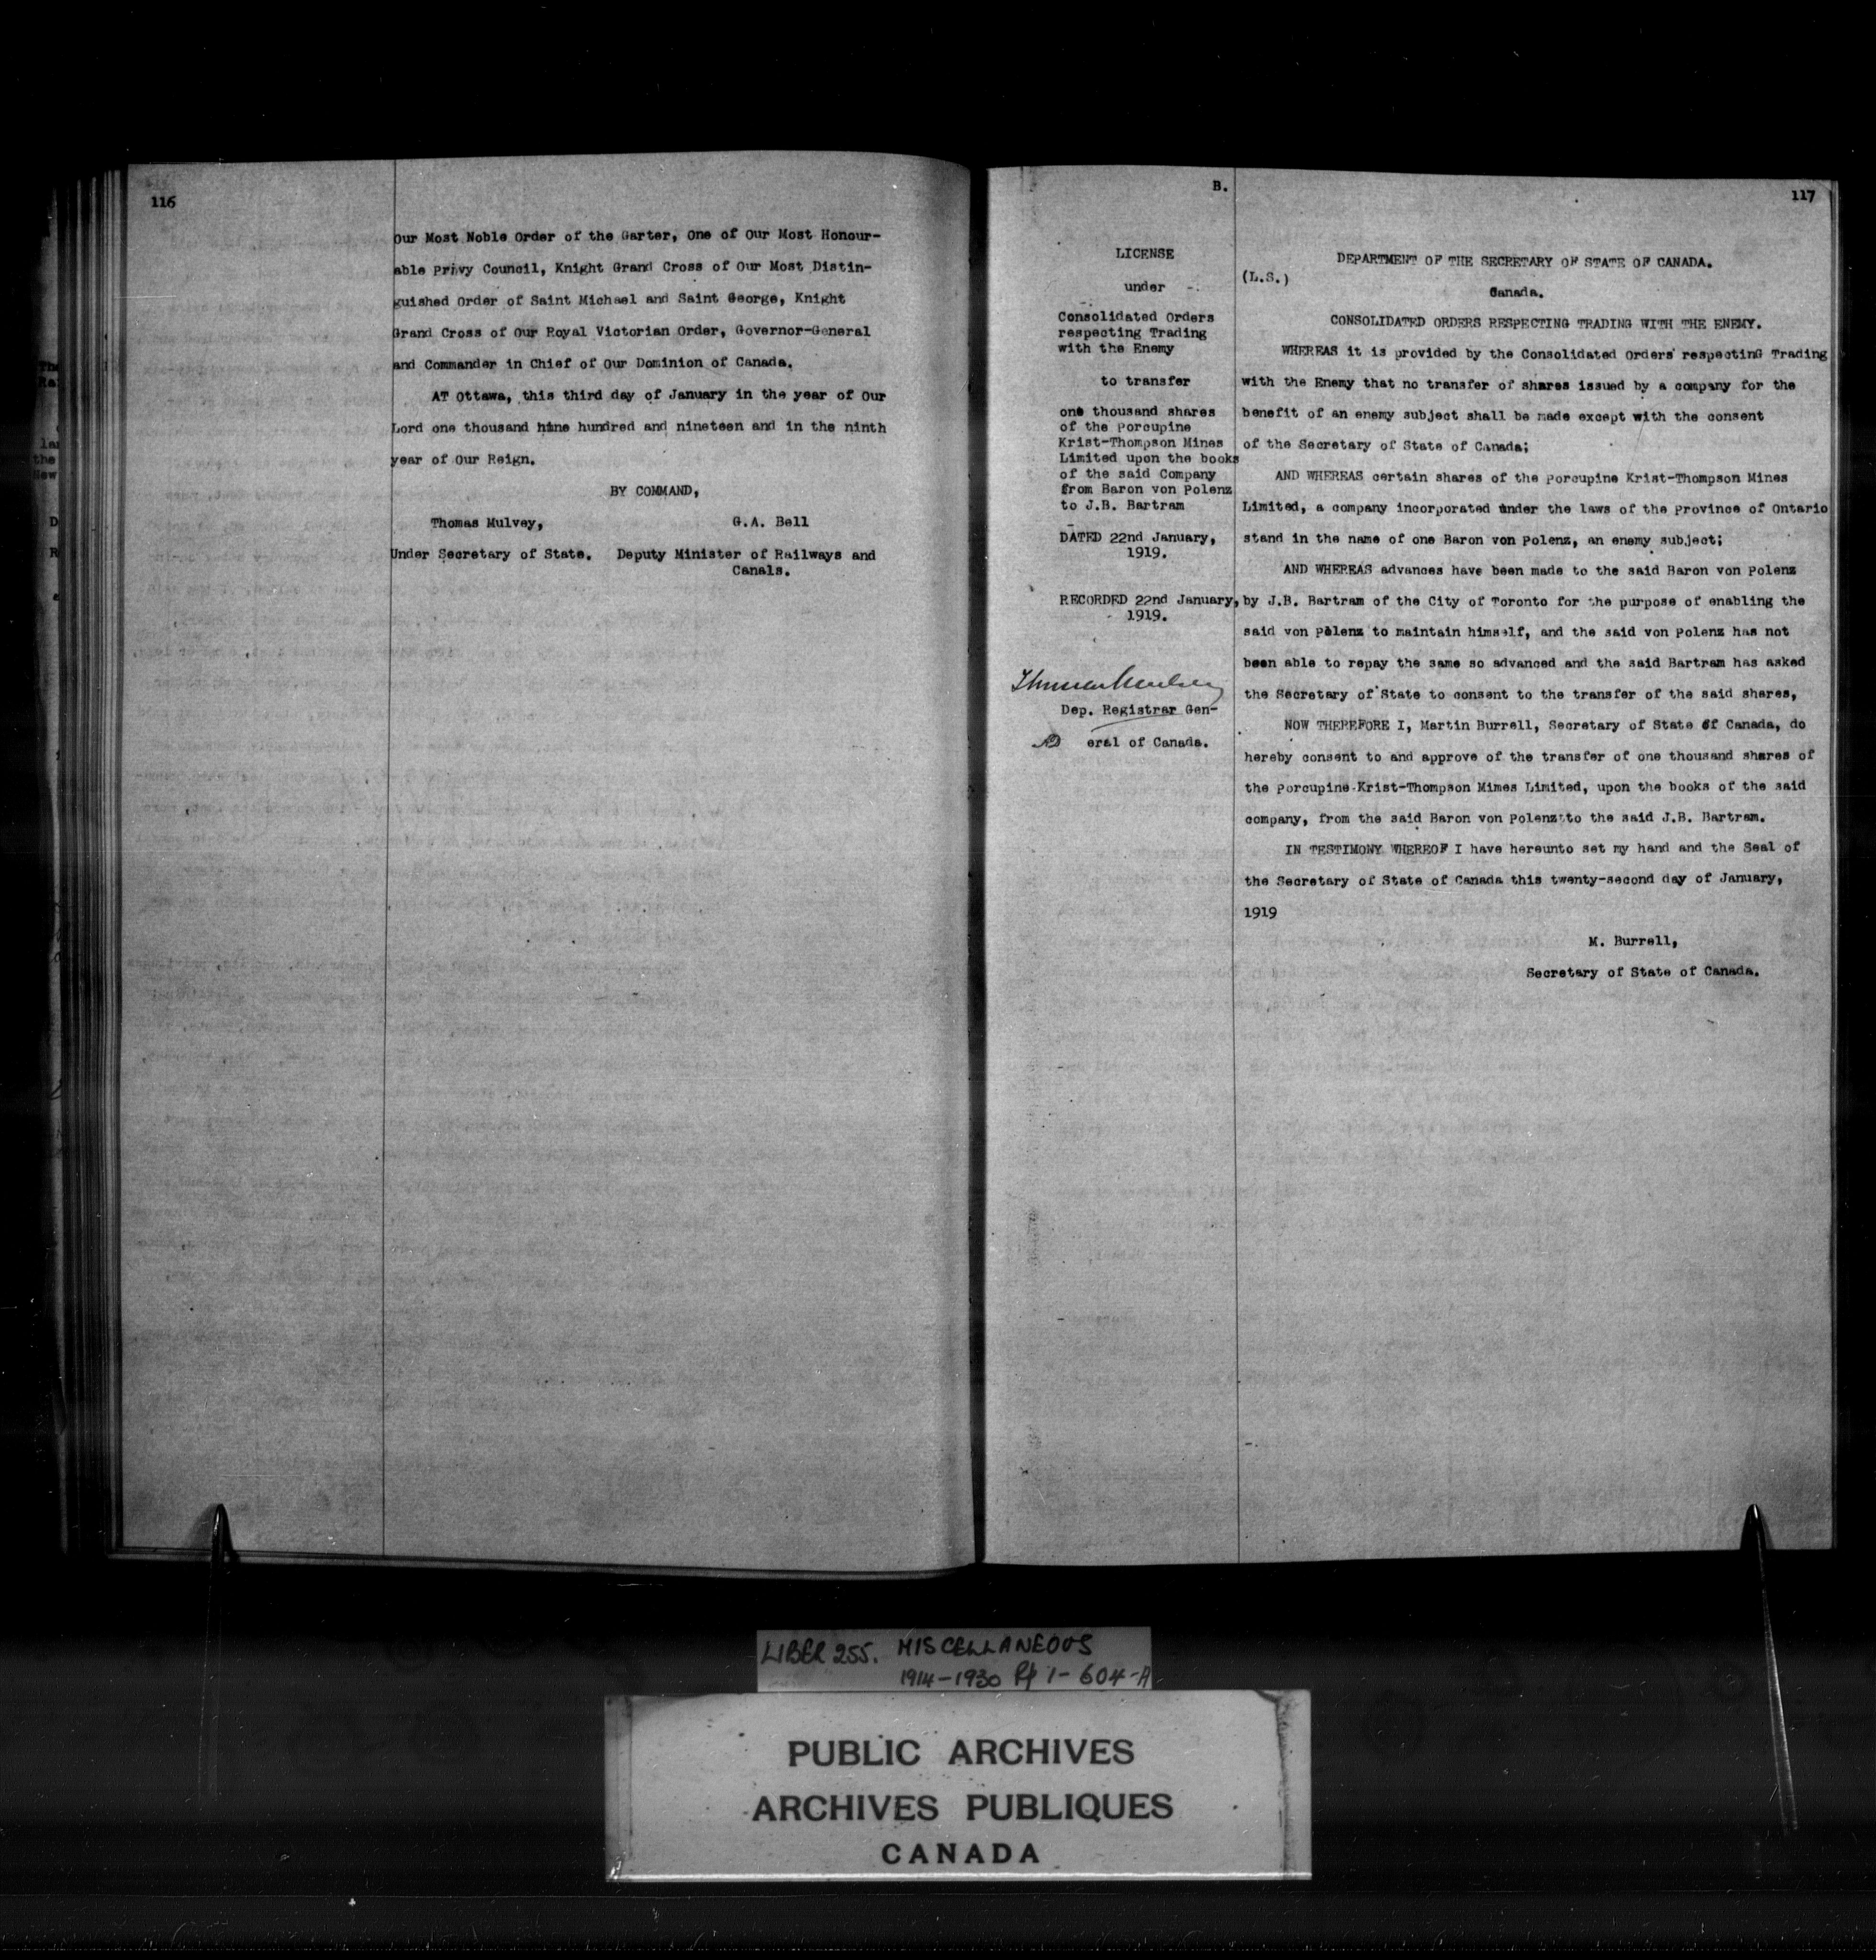 116
Our Most Noble Order of the Garter, One of Our Most Honour-
able Privy Council, Knight Grand Cross of Our Most Distin-
guished Order of Saint Michael and Saint George, Knight
Grand Cross of Our Royal Victorian Order, Governor-General
and Commander in Chief of Our Dominion of Canada.
AT Ottawa, this third day of January in the year of Our
Lord one thousand nine hundred and nineteen and in the ninth
year of Our Reign.
BY COMMAND,
Thomas Mulvey, G.A. Bell
Under Secretary of State. Deputy Minister of Railways and
Canals.
B.
117
LICENSE
under
Consolidated Orders
respecting Trading
with the Enemy
to transfer
one thousand shares
of the Porcupine
Krist-Thompson Mines
Limited upon the books
of the said Company
from Baron von Polenz
to J.B. Bartram
DATED 22nd January,
1919.
RECORDED 22nd January,
1919.
Thomas Mulvey
Dep. Registrar Gen-
eral of Canada.
DEPARTMENT OF THE SECRETARY OF STATE OF CANADA.
(L.S.)
Canada.
CONSOLIDATED ORDERS RESPECTING TRADING WITH THE ENEMY.
WHEREAS it is provided by the Consolidated Orders respecting Trading
with the Enemy that no transfer of shares issued by a company for the
benefit of an enemy subject shall be made except with the consent
of the Secretary of State of Canada;
AND WHEREAS certain shares of the Porcupine Krist-Thompson Mines
Limited, a company incorporated under the laws of the Province of Ontario
stand in the name of one Baron von Polenz, an enemy subject;
AND WHEREAS advances have been made to the said Baron von Polenz
by J.B. Bartram of the City of Toronto for the purpose of enabling the
said von Polenz to maintain himself, and the said von Polenz has not
been able to repay the same so advanced and the said Bartram has asked
the Secretary of State to consent to the transfer of the said shares,
NOW THEREFORE I, Martin Burrell, Secretary of State of Canada, do
hereby consent to and approve of the transfer of one thousand shares of
the Porcupine Krist-Thompson Mimes Limited, upon the books of the said
company, from the said Baron von Polenz to the said J.B. Bartram.
IN TESTIMONY WHEREOF I have hereunto set my hand and the Seal of
the Secretary of State of Canada this twenty-second day of January,
1919
M. Burrell,
Secretary of State of Canada.
LIBER 255. MISCELLANEOUS
1914-1930 Pp 1-604-A
PUBLIC ARCHIVES
ARCHIVES PUBLIQUES
CANADA